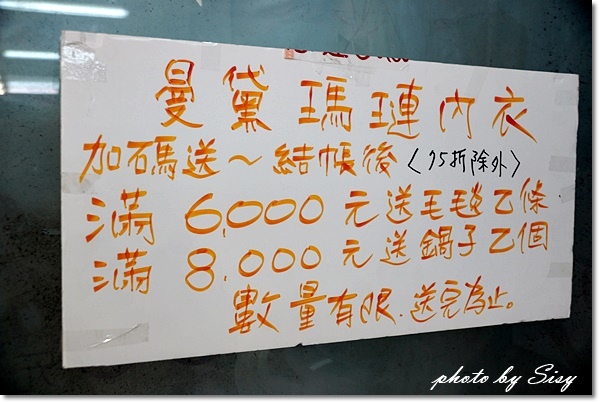 曼黛瑪璉內衣
加碼送～結帳後〈75折除外〉
滿 6,000 元送毛毯乙條.
滿 8,000 元送鍋子乙個
數量有限.送完為止。
photo by Sisy